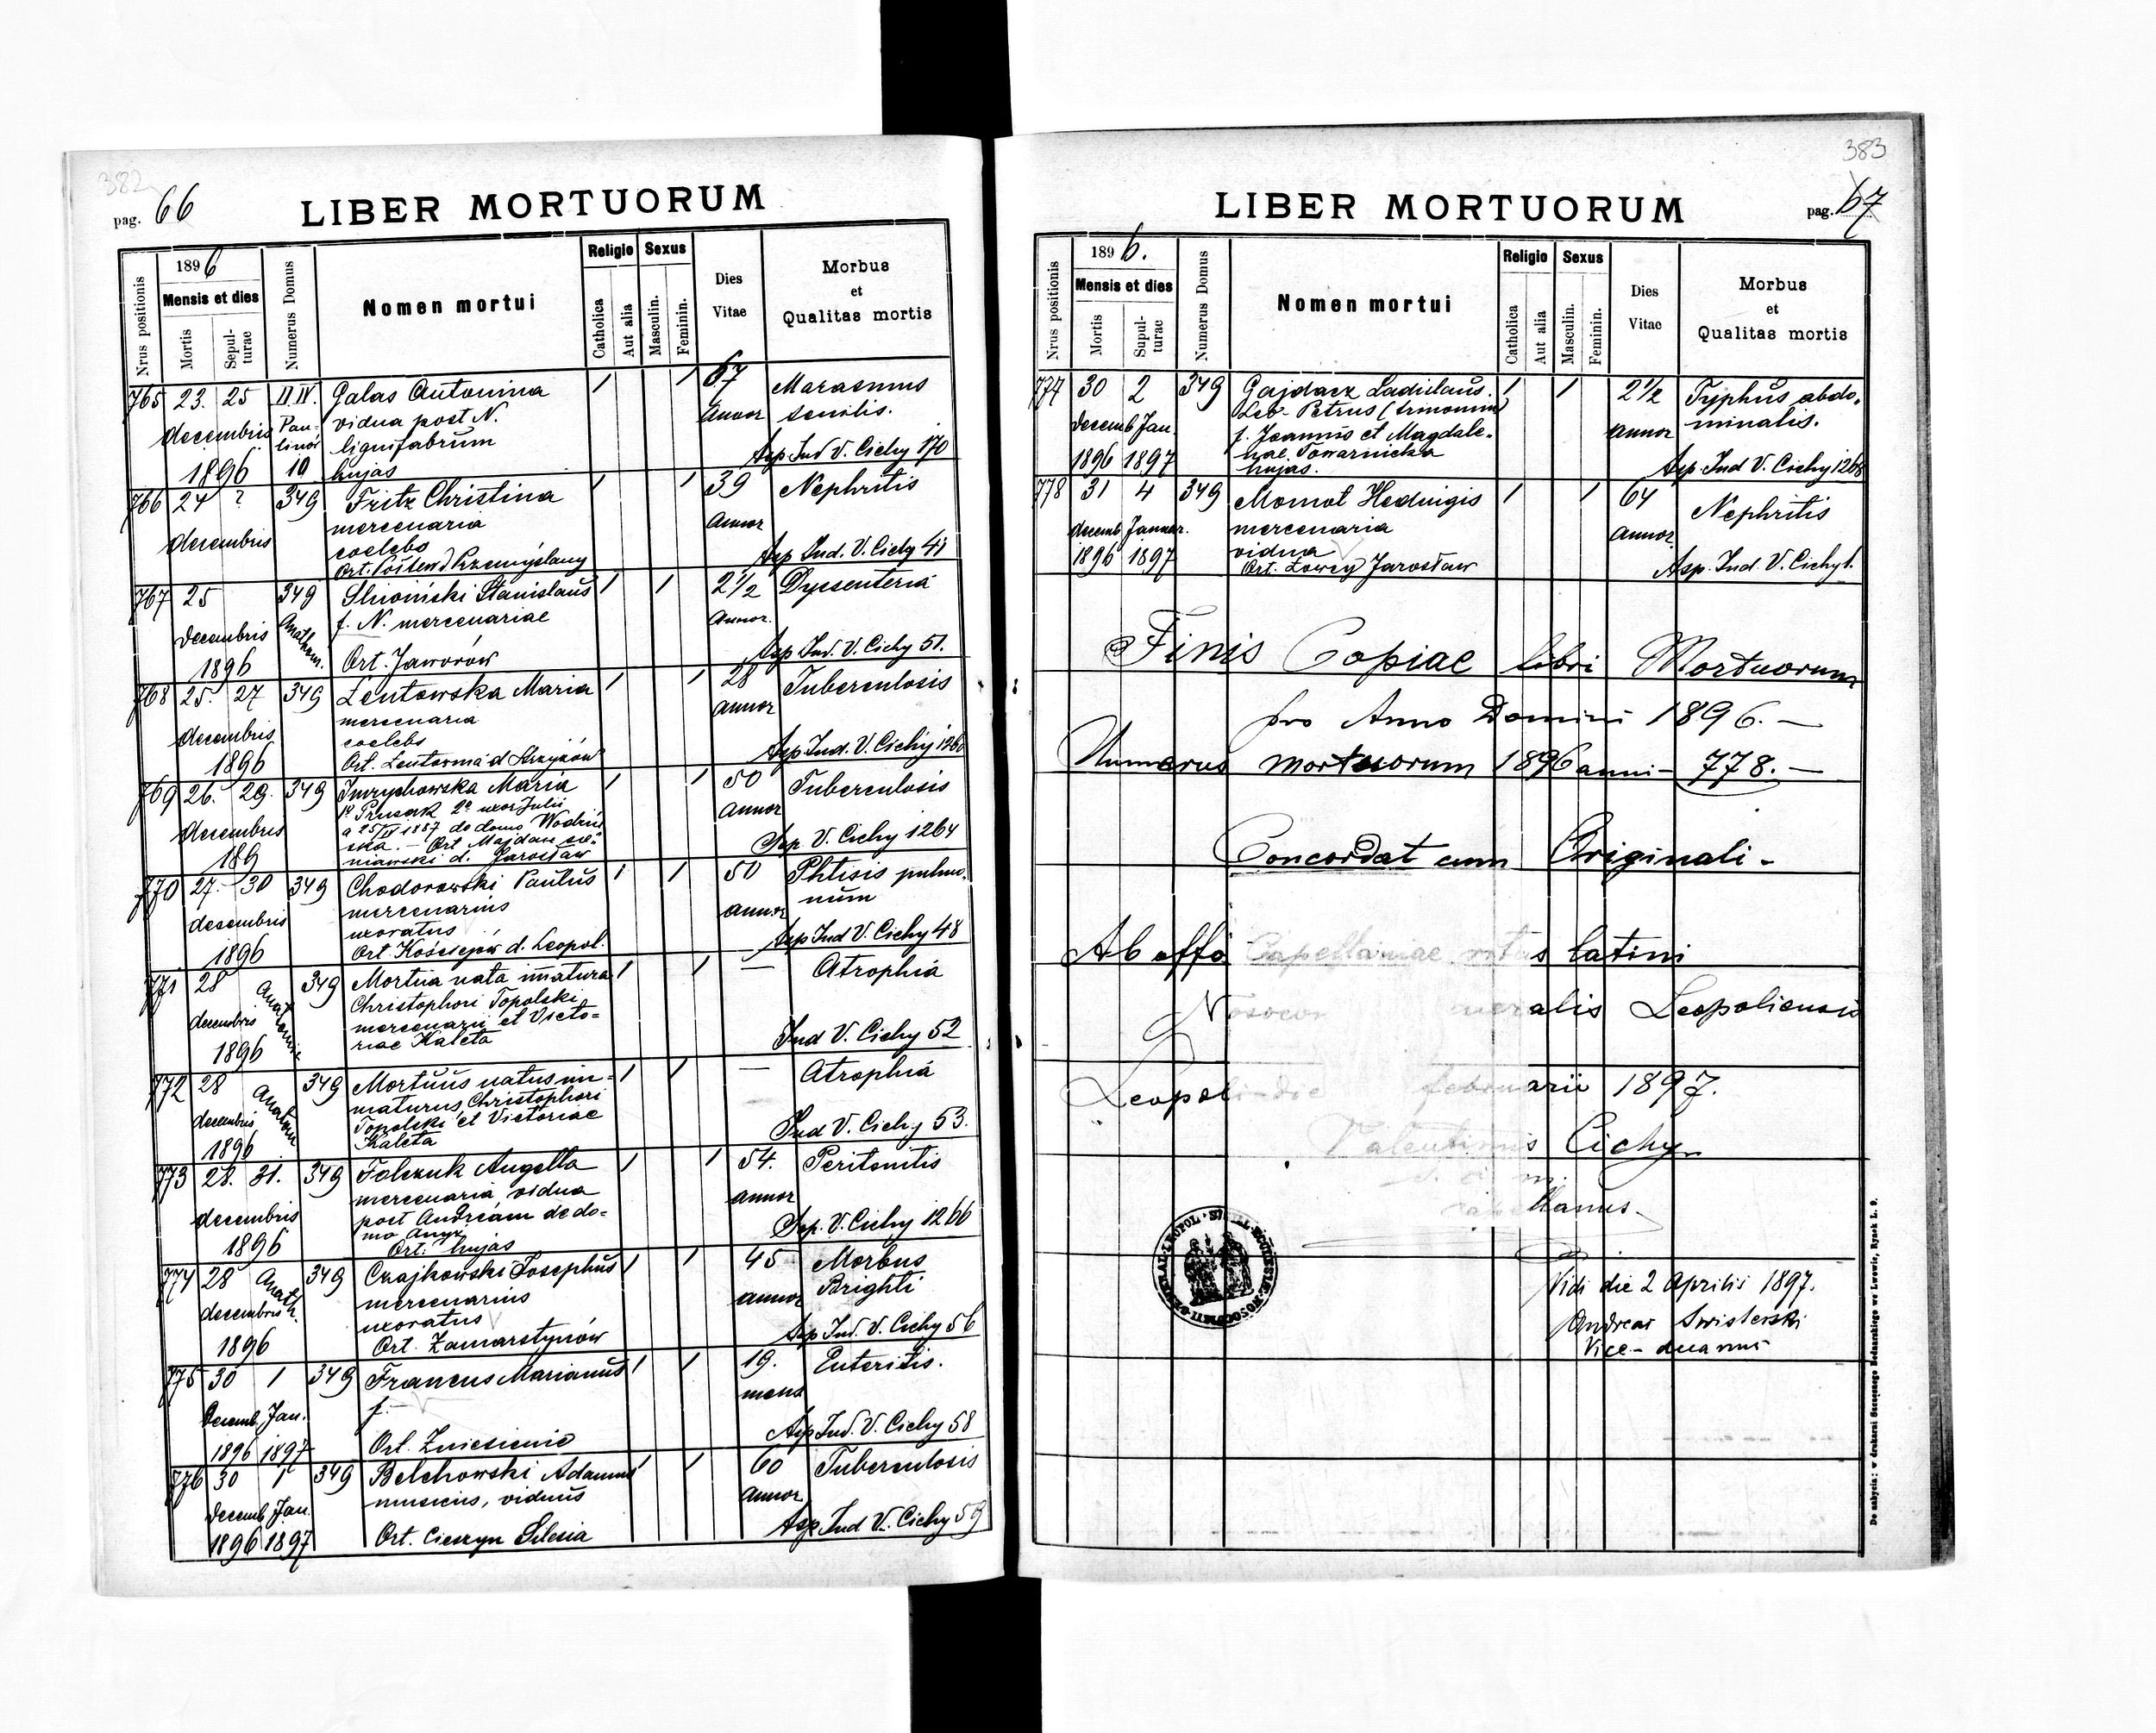 382
pag. 66
LIBER MORTUORUM
Nrus positionis
1896
Mensis et dies
Mortis
Sepul-
turae
Numerus Domus
Nomen mortui
Religio
Catholica
Aut alia
Sexus
Masculin.
Feminin.
Dies
Vitae
Morbus
et
Qualitas mortis
765 23. 25 II.IV. Galas Antonina / / 67 Marasmus
decembris Pau- vidua post N. annor senilis.
linów lignifabrum
1896 10 hujas Asp. Ind V. Cichy 170
766 24 ? 349 Fritz Christina / / 39 Nephritis
mercenaria annor
decembris coelebs
Ort. d Przemyślany Asp Ind. V. Cichy 41
767 25 349 Stanislaus / / 2 1/2 Dysenteria
decembris Anatom. f. N. mercenariae annor.
1896 Ort. Jaworów Asp Ind. V. Cichy 51.
768 25. 27 349 Lentowska Maria / / 28 Tuberculosis
mercenaria annor
decembris coelebs
1896 Ort. d Strzyżów Asp Ind. V. Cichy 1260
769 26. 29. 349 Maria / / 50 Tuberculosis
1º Prusak 2º uxor Julii annor
decembris a 25/IV 1887 de domo Wodzin
ska. - Ort Majdan sie-
189 niawski d. Jarosław Asp. V. Cichy 1264
770 27. 30 349 Chodorowski Paulus / / 50 Phtisis pulmo-
decembris mercenarius annor num
uxoratus
1896 Ort. Kościejów d. Leopol. Asp Ind V. Cichy 48
771 28 Anatomia 349 Mortua nata imatura / / — Atrophia
decembris Christophori Topolski
mercenarii et Victo-
1896 riae Kaleta Ind V. Cichy 52
772 28 Anatom 349 Mortuus natus im- / / — Atrophia
decembris maturus Christophori
Topolski et Victoriae
1896 Kaleta Ind V. Cichy 53.
773 28. 31. 349 Folczuk Angella / / 54. Peritonitis
mercenaria, vidua annor
decembris post Andream de do-
mo
1896 Ort. hujas Asp. V. Cichy 1266
774 28 Anath. 349 Czajkowski Josephus / / 45 Morbus
decembris mercenarius annor Brighti
uxoratus
1896 Ort. Zamarstynów Asp Ind. V. Cichy 56
775 30 1 349 Francus Marianus / / 19. Enteritis.
Decemb. Jan. f. — mens
1896 1897 Ort. Zniesienie Asp Ind. V. Cichy 58
776 30 1 349 Belchowski Adamus / / 60 Tuberculosis
decemb Jan. musicus, viduus annor
1896 1897 Ort. Cieszyn Silesia Asp Ind V. Cichy 59
383
pag. 67
LIBER MORTUORUM
Nrus positionis
1896.
Mensis et dies
Mortis
Supul-
turae
Numerus Domus
Nomen mortui
Religio
Catholica
Aut alia
Sexus
Masculin.
Feminin.
Dies
Vitae
Morbus
et
Qualitas mortis
777 30 2 349 Gajdacz Ladislaus. / / 2 1/2 Typhus abdo-
Leo- Petrus (trinomin) annor minalis.
decemb Jan. f. Joannis et Magdale-
nae Towarnicka
1896 1897 hujas. Asp. Ind V. Cichy 1268
778 31 4 349 Momot Hedvigis / / 64 Nephritis
decemb Januar. mercenaria annor
1896 1897 vidua
Ort. Łowcy Jarosław Asp. Ind V. Cichy 1.
Finis Copiae libri Mortuorum
pro Anno Domini 1896. —
Numerus mortuorum 1896 anni — 778. —
Concordat cum Originali -
Ab offo Capellaniae ritus latini
Leopoliensis
Leopoli die februarii 1897.
Valentinus Cichy
capellanus
Vidi die 2 Aprilis 1897.
Andreas
Vice-decanus
Do nabycia: w drukarni Szczęsnego Bednarskiego we Lwowie, Rynek L. 9.